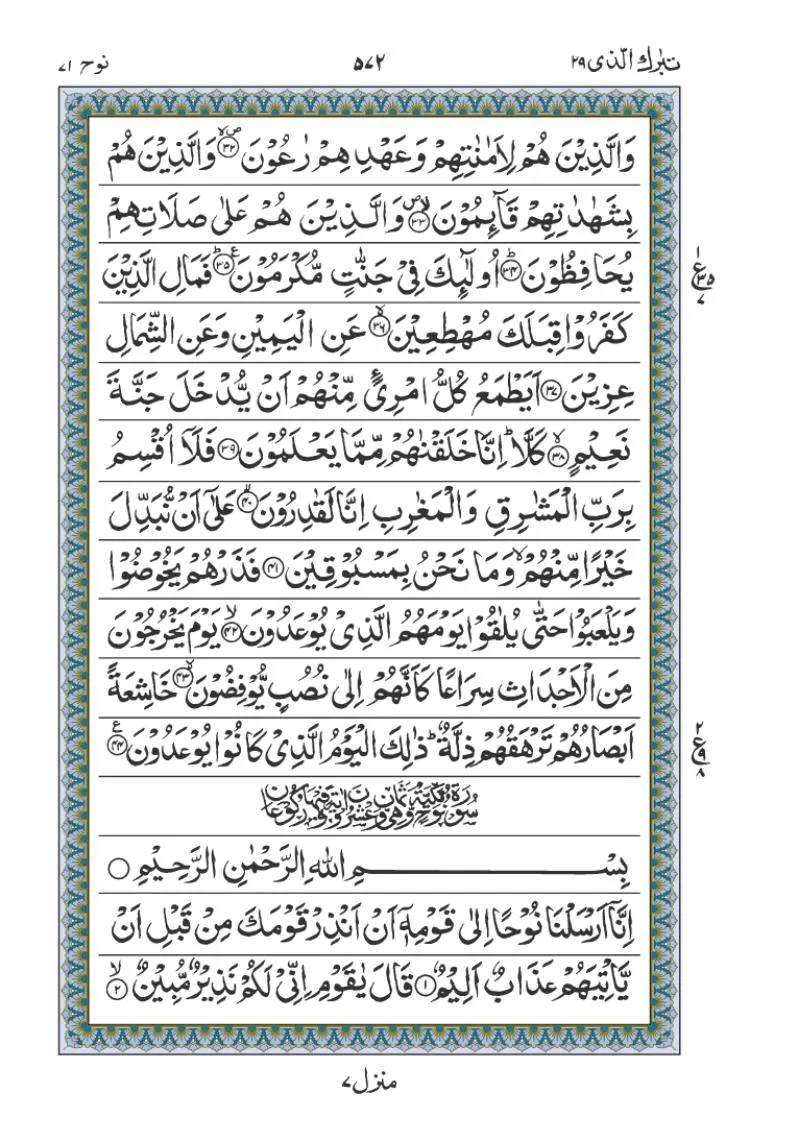 تبٰرك الّذی ٢٩
٥٧٢
نوح ٧١
وَالَّذِيْنَ هُمْ لِاَمٰنٰتِهِمْ وَعَهْدِهِمْ رٰعُوْنَ ۪ۙ‏﴿٣٢﴾ وَالَّذِيْنَ هُمْ
بِشَهٰدٰتِهِمْ قَآئِمُوْنَ ۪ۙ‏﴿٣٣﴾ وَالَّذِيْنَ هُمْ عَلٰى صَلَاتِهِمْ
يُحَافِظُوْنَ ؕ‏﴿٣٤﴾ اُولٰٓئِكَ فِىْ جَنّٰتٍ مُّكْرَمُوْنَ ؕ‏﴿٣٥﴾ فَمَالِ الَّذِيْنَ
ع
٣٥
٧
كَفَرُوْا قِبَلَكَ مُهْطِعِيْنَ ۙ‏﴿٣٦﴾ عَنِ الْيَمِيْنِ وَعَنِ الشِّمَالِ
عِزِيْنَ‏﴿٣٧﴾ اَيَطْمَعُ كُلُّ امْرِیٴٍ مِّنْهُمْ اَنْ يُّدْخَلَ جَنَّةَ
نَعِيْمٍ ۙ‏﴿٣٨﴾ كَلَّا ؕ اِنَّا خَلَقْنٰهُمْ مِّمَّا يَعْلَمُوْنَ‏﴿٣٩﴾ فَلَاۤ اُقْسِمُ
بِرَبِّ الْمَشٰرِقِ وَالْمَغٰرِبِ اِنَّا لَقٰدِرُوْنَ ۙ‏﴿٤٠﴾ عَلٰٓى اَنْ نُّبَدِّلَ
خَيْرًا مِّنْهُمْ ۙ وَمَا نَحْنُ بِمَسْبُوْقِيْنَ‏﴿٤١﴾ فَذَرْهُمْ يَخُوْضُوْا
وَيَلْعَبُوْا حَتّٰى يُلٰقُوْا يَوْمَهُمُ الَّذِىْ يُوْعَدُوْنَ ۙ‏﴿٤٢﴾ يَوْمَ يَخْرُجُوْنَ
مِنَ الْاَجْدَاثِ سِرَاعًا كَاَنَّهُمْ اِلٰى نُصُبٍ يُّوْفِضُوْنَ ۙ‏﴿٤٣﴾ خَاشِعَةً
اَبْصَارُهُمْ تَرْهَقُهُمْ ذِلَّةٌ ؕ ذٰلِكَ الْيَوْمُ الَّذِىْ كَانُوْا يُوْعَدُوْنَ‏﴿٤٤﴾
٢
ع
٩
٨
سُوْرَةُ نُوْحٍ مَّكِّيَّةٌ وَّهِىَ ثَمَانٍ وَّعِشْرُوْنَ اٰيَةً وَّفِيْهَا رُكُوْعَانِ
بِسْمِ اللهِ الرَّحْمٰنِ الرَّحِيْمِ
اِنَّاۤ اَرْسَلْنَا نُوْحًا اِلٰى قَوْمِهٖۤ اَنْ اَنْذِرْ قَوْمَكَ مِنْ قَبْلِ اَنْ
يَّاْتِيَهُمْ عَذَابٌ اَلِيْمٌ‏﴿١﴾ قَالَ يٰقَوْمِ اِنِّىْ لَكُمْ نَذِيْرٌ مُّبِيْنٌ ۙ‏﴿٢﴾
منزل ٧